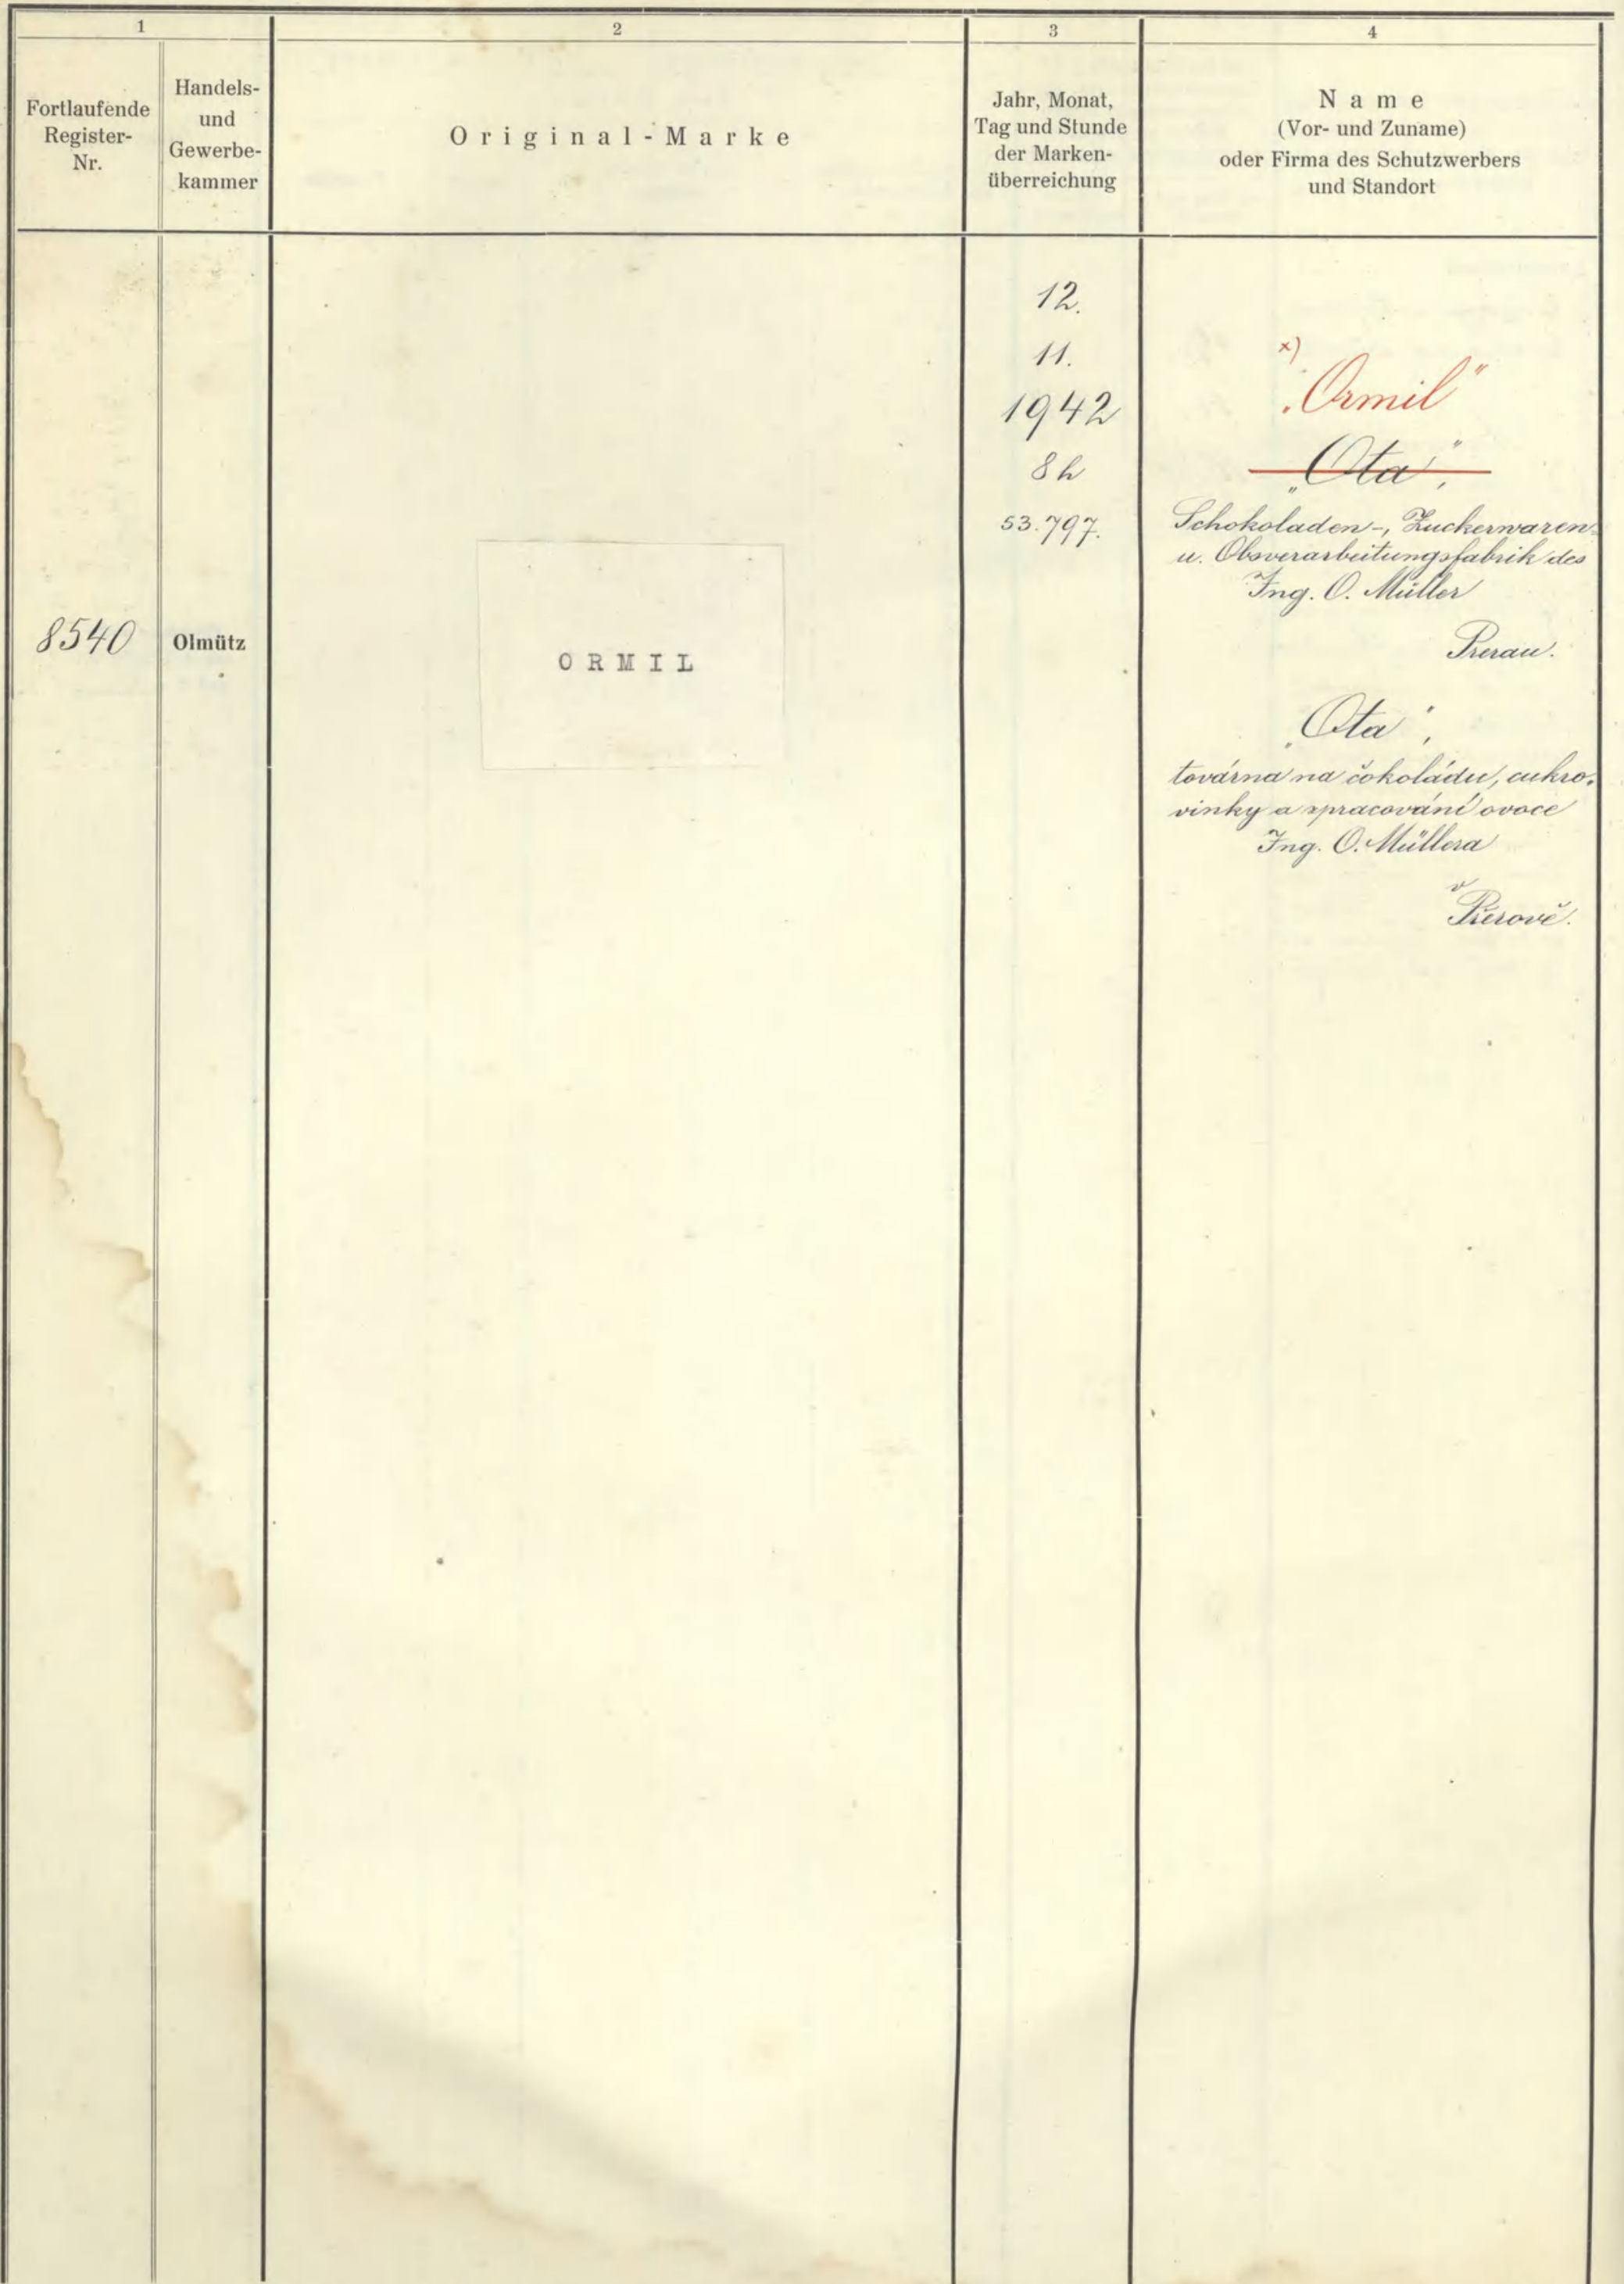 1
2
3
4
Fortlaufende
Register-
Nr.
Handels-
und
Gewerbe-
kammer
Original-Marke
Jahr, Monat,
Tag und Stunde
der Marken-
überreichung
Name
(Vor- und Zuname)
oder Firma des Schutzwerbers
und Standort
8540
Olmütz
ORMIL
12.
11.
1942
8 h
53.797.
x)
„Ormil"
„Ota",
Schokoladen-, Zuckerwaren-
u. Obsverarbeitungsfabrik des
Ing. O. Müller
Prerau.
„Ota",
továrna na čokoládu, cukro-
vinky a zpracování ovoce
Ing. O. Müllera
v
Přerově.